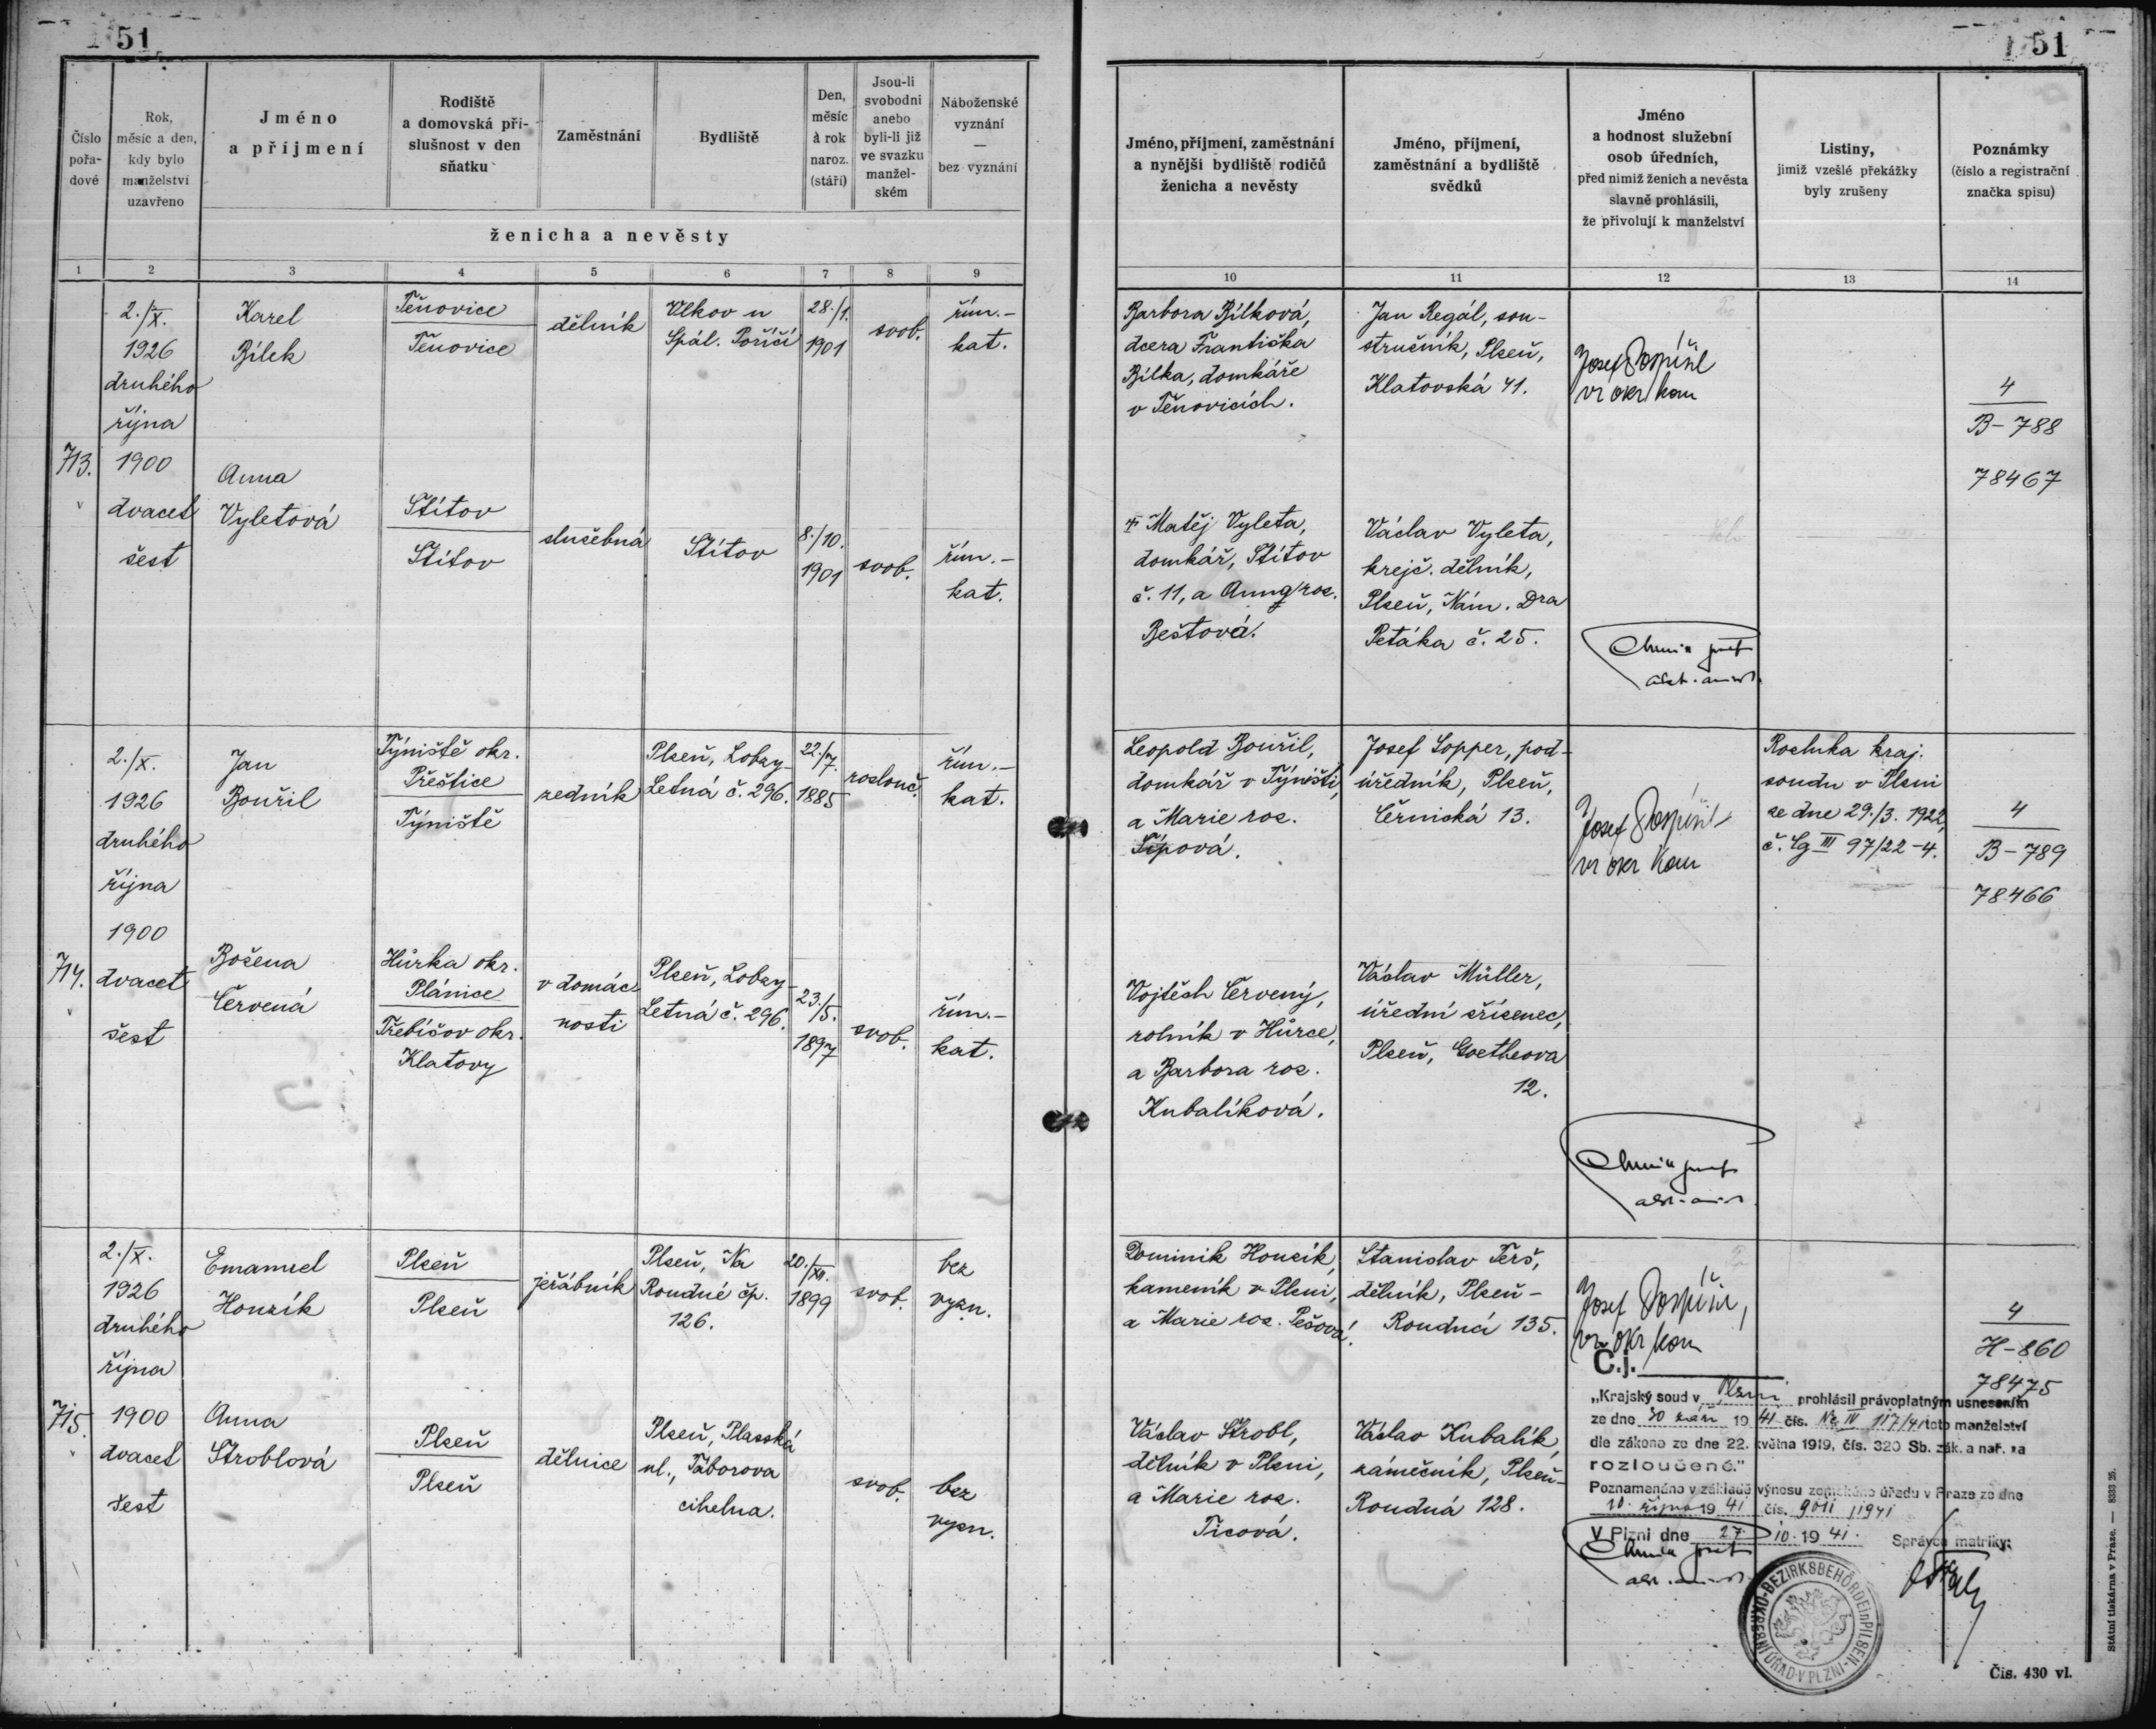 51
Číslo pořa-dové
Rok, měsíc a den, kdy bylo manželství uzavřeno
Jméno a příjmení
Rodiště a domovská při-slušnost v den sňatku
Zaměstnání
Bydliště
Den, měsíc à rok naroz. (stáří)
Jsou-li svobodni anebo byli-li již ve svazku manžel-ském
Náboženské vyznání — bez vyznání
ženicha a nevěsty
1 2 3 4 5 6 7 8 9
713.
2./X.
1926
druhého
října
1900
dvacet
šest
Karel
Bílek
Těňovice
Těňovice
dělník
Vlkov u
Spál. Poříčí
28./1.
1901
svob.
řím.-
kat.
Anna
Vyletová
Štítov
Štítov
služebná
Štítov
8./10.
1901
svob.
řím.-
kat.
714.
2./X.
1926
druhého
října
1900
dvacet
šest
Jan
Bouřil
Týniště okr.
Přeštice
Týniště
zedník
Plzeň, Lobzy-
Letná č. 296.
22./7.
1885
rozlouč.
řím.-
kat.
Božena
Červená
Hůrka okr.
Plánice
Třebíšov okr.
Klatovy
v domác-
nosti
Plzeň, Lobzy-
Letná č. 296.
23./5.
1897
svob.
řím.-
kat.
715.
2./X.
1926
druhého
října
1900
dvacet
šest
Emanuel
Houzík
Plzeň
Plzeň
jeřábník
Plzeň, Na
Roudné čp.
126.
20./XII.
1899
svob.
bez
vyzn.
Anna
Stroblová
Plzeň
Plzeň
dělnice
Plzeň, Plasská
ul., Táborova
cihelna.
svob.
bez
vyzn.
51
Jméno, příjmení, zaměstnání
a nynější bydliště rodičů
ženicha a nevěsty
Jméno, příjmení,
zaměstnání a bydliště
svědků
Jméno
a hodnost služební
osob úředních,
před nimiž ženich a nevěsta
slavně prohlásili,
že přivolují k manželství
Listiny,
jimiž vzešlé překážky
byly zrušeny
Poznámky
(číslo a registrační
značka spisu)
10 11 12 13 14
Barbora Bílková,
dcera Františka
Bílka, domkáře
v Těňovicích.
Jan Regál, sou-
stružník, Plzeň,
Klatovská 41.
Josef Pospíšil
vr okr kom
4
B-788
78467
Matěj Vyleta,
domkář, Štítov
č. 11, a Anna roz.
Beštová.
Václav Vyleta,
krejč. dělník,
Plzeň, Nám. Dra
Petáka č. 25.
Leopold Bouřil,
domkář v Týništi,
a Marie roz.
Típová.
Josef Sopper, pod-
úředník, Plzeň,
Černická 13.
Josef Pospíšil
vr okr kom
Rozluka kraj.
soudu v Plzni
ze dne 29./3. 1922,
č. Cg III 97/22-4.
4
B-789
78466
Vojtěch Červený,
rolník v Hůrce,
a Barbora roz.
Kubalíková.
Václav Müller,
úřední zřízenec,
Plzeň, Goetheova
12.
Dominik Houzík,
kameník v Plzni,
a Marie roz. Pešová.
Stanislav Terš,
dělník, Plzeň-
Roudná 135.
Josef Pospíšil,
vr okr kom
4
H-860
78475
Václav Strobl,
dělník v Plzni,
a Marie roz.
Ticová.
Václav Kubalík,
zámečník, Plzeň-
Roudná 128.
Č.j.
„Krajský soud v Plzni prohlásil právoplatným usnesením
ze dne 30 září 1941 čís. Nc IV 117/41 toto manželství
dle zákona ze dne 22. května 1919, čís. 320 Sb. zák. a nař. za
rozloučené."
Poznamenáno v základě výnosu zemského úřadu v Praze ze dne
10. října 1941 čís. 9011/1941
V Plzni dne 27. 10. 1941. Správce matriky:
BEZIRKSBEHÖRDE in PILSEN - OKRESNÍ ÚŘAD V PLZNI
Čís. 430 vl.
Státní tiskárna v Praze. — 8333 26.